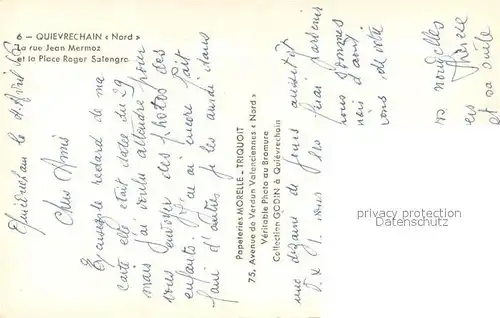 6 – QUIEVRECHAIN « Nord »
La rue Jean Mermoz
et la Place Roger Salengro
Quiévrechain le Avril
Chers Amis
Excusez le retard de ma
carte elle était datée du 29
mais j'ai voulu attendre pour
vous envoyer des photos des
enfants. j'en ai encore fait
faire d'autres je les aurai dans
Papeteries MORELLE - TRIQUOIT
75, Avenue de Verdun Valenciennes « Nord »
Véritable Photo au Bromure
Collection GODIN à Quiévrechain
une dizaine de jours aussitôt
je vous les ferai parvenir
nous sommes
vous de votre
vos nouvelles
et sa suite
privacy protection
Datenschutz